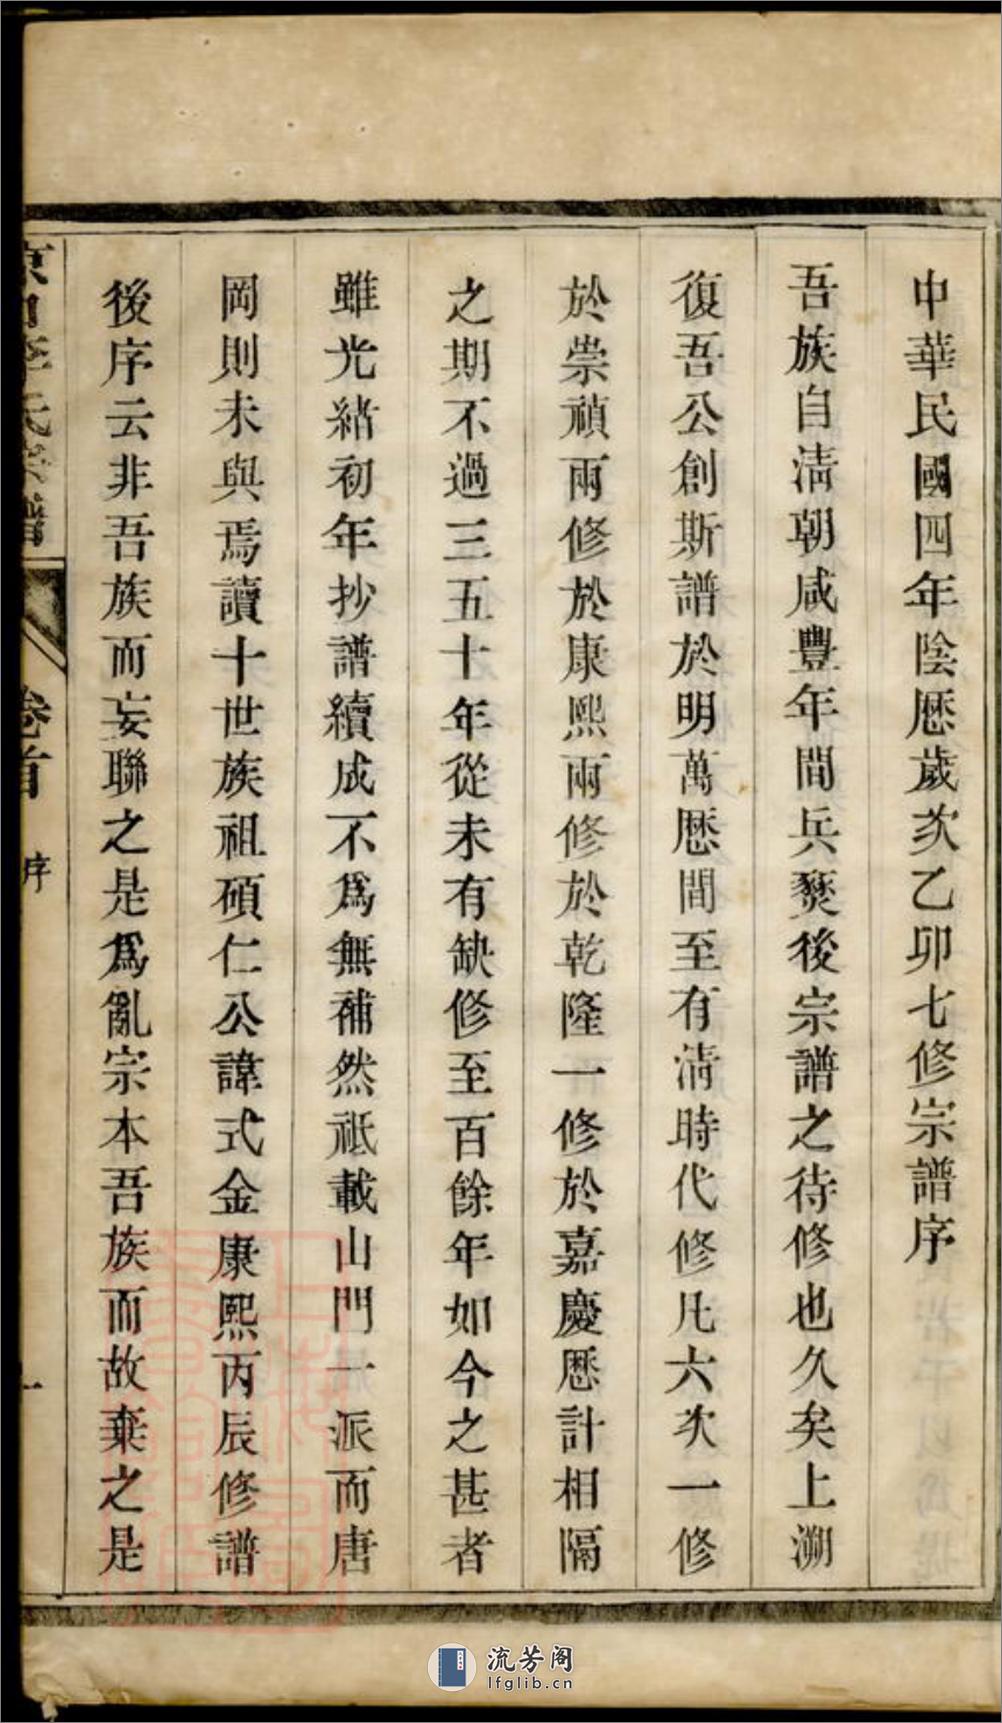 中華民國四年陰厯歲次乙卯七修宗譜序
吾族自淸朝咸豐年間兵燹後宗譜之待修也久矣上溯
復吾公創斯譜於明萬厯間至有淸時代修凡六次一修
於崇禎兩修於康熙兩修於乾隆一修於嘉慶厯計相隔
之期不過三五十年從未有缺修至百餘年如今之甚者
雖光緒初年抄譜續成不爲無補然祇載山門一派而唐
岡則未與焉讀十世族祖碩仁公諱式金康熙丙辰修譜
後序云非吾族而妄聯之是爲亂宗本吾族而故棄之是
李氏宗譜
卷首
序
一
流芳阁
lfglib.cn